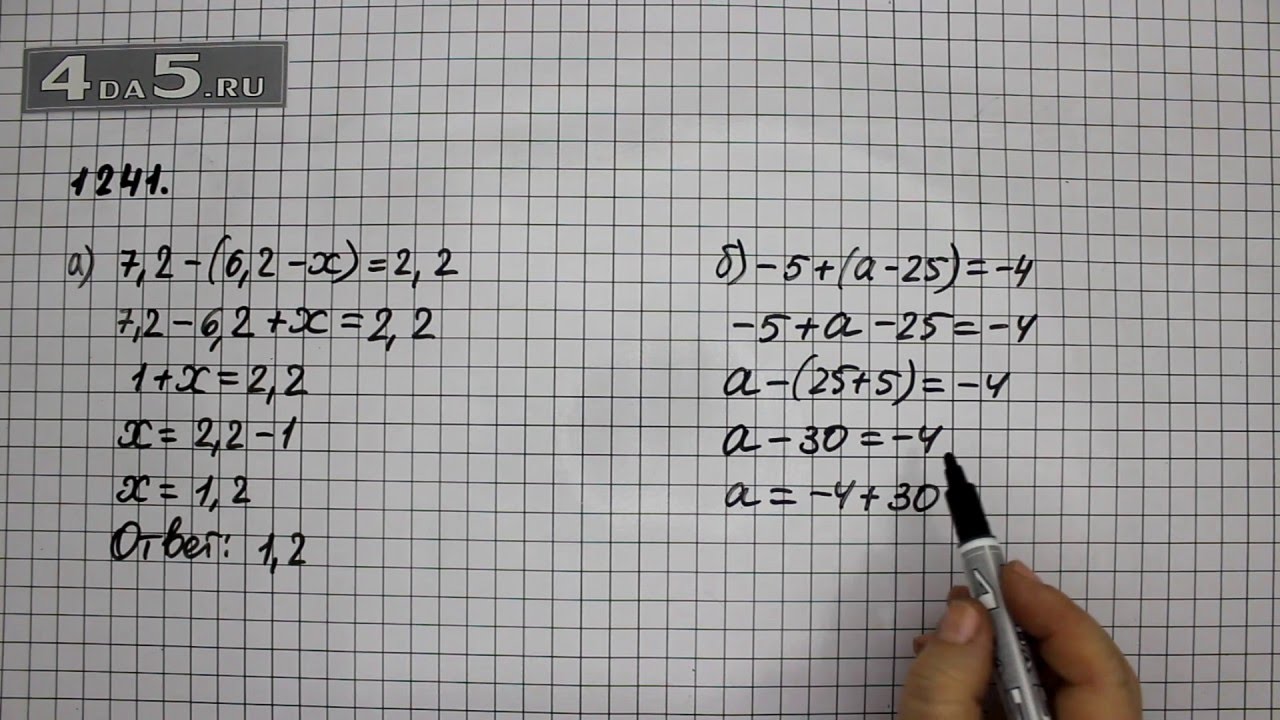 4DA5.RU
1241.
а) 7,2-(6,2-x)=2,2
7,2-6,2+x=2,2
1+x=2,2
x=2,2-1
x=1,2
Ответ: 1,2
б) -5+(a-25)=-4
-5+a-25=-4
a-(25+5)=-4
a-30=-4
a=-4+30